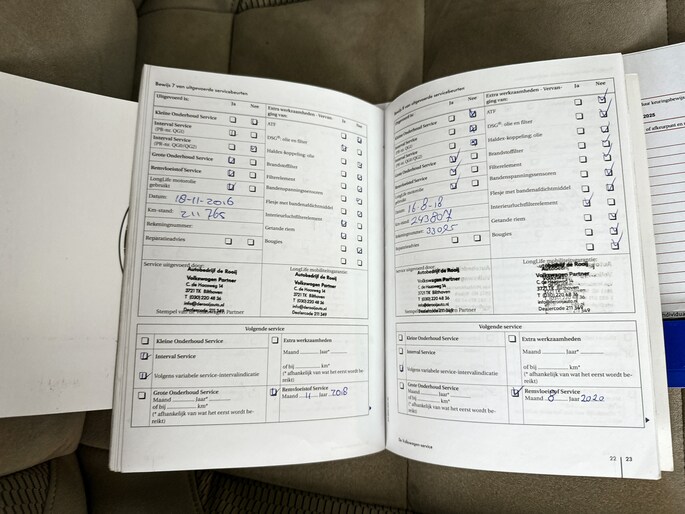 Bewijs 7 van uitgevoerde servicebeurten
Uitgevoerd is: Ja Nee
Extra werkzaamheden - Vervanging van: Ja Nee
Kleine Onderhoud Service
Interval Service
(PR-nr. QG1)
Interval Service
(PR-nr. QG0/QG2)
Grote Onderhoud Service
Remvloeistof Service
LongLife motorolie
gebruikt
Datum: 18-11-2016
Km-stand: 211765
Rekeningnummer:
Reparatieadvies
ATF
DSG®: olie en filter
Haldex-koppeling: olie
Brandstoffilter
Filterelement
Bandenspanningssensoren
Flesje met bandenafdichtmiddel
Interieurluchtfilterelement
Getande riem
Bougies
Service uitgevoerd door:
LongLife mobiliteitsgarantie:
Autobedrijf de Rooij
Volkswagen Partner
C. de Haasweg 14
3721 TK Bilthoven
T (030) 220 48 36
info@derooijauto.nl
Dealercode 211 349
Autobedrijf de Rooij
Volkswagen Partner
C. de Haasweg 14
3721 TK Bilthoven
T (030) 220 48 36
info@derooijauto.nl
Dealercode 211 349
Volgende service
Kleine Onderhoud Service
Interval Service
Volgens variabele service-intervalindicatie
Grote Onderhoud Service
Maand Jaar*
of bij km*
(* afhankelijk van wat het eerst wordt bereikt)
Extra werkzaamheden
Maand Jaar*
of bij km*
(* afhankelijk van wat het eerst wordt bereikt)
Remvloeistof Service
Maand 11 Jaar 2018
Bewijs 8 van uitgevoerde servicebeurten
Uitgevoerd is: Ja Nee
Extra werkzaamheden - Vervanging van: Ja Nee
Kleine Onderhoud Service
Interval Service
Interval Service
(PR-nr. QG0/QG2)
Grote Onderhoud Service
Remvloeistof Service
LongLife motorolie
gebruikt
Datum: 16-8-18
Km-stand: 243807
Rekeningnummer: 33025
Reparatieadvies
ATF
DSG®: olie en filter
Haldex-koppeling: olie
Brandstoffilter
Filterelement
Bandenspanningssensoren
Flesje met bandenafdichtmiddel
Interieurluchtfilterelement
Getande riem
Bougies
Service uitgevoerd door:
LongLife mobiliteitsgarantie:
Autobedrijf de Rooij
Volkswagen Partner
C. de Haasweg 14
3721 TK Bilthoven
T (030) 220 48 36
info@derooijauto.nl
Dealercode 211 349
Volkswagen Partner
3721 TK Bilthoven
T (030) 220 48 36
info@derooijauto.nl
Dealercode 211 349
Volgende service
Kleine Onderhoud Service
Interval Service
Volgens variabele service-intervalindicatie
Grote Onderhoud Service
Maand Jaar*
of bij km*
(* afhankelijk van wat het eerst wordt bereikt)
Extra werkzaamheden
Maand Jaar*
of bij km*
(* afhankelijk van wat het eerst wordt bereikt)
Remvloeistof Service
Maand 8 Jaar 2020
De Volkswagen service
22 23
2025